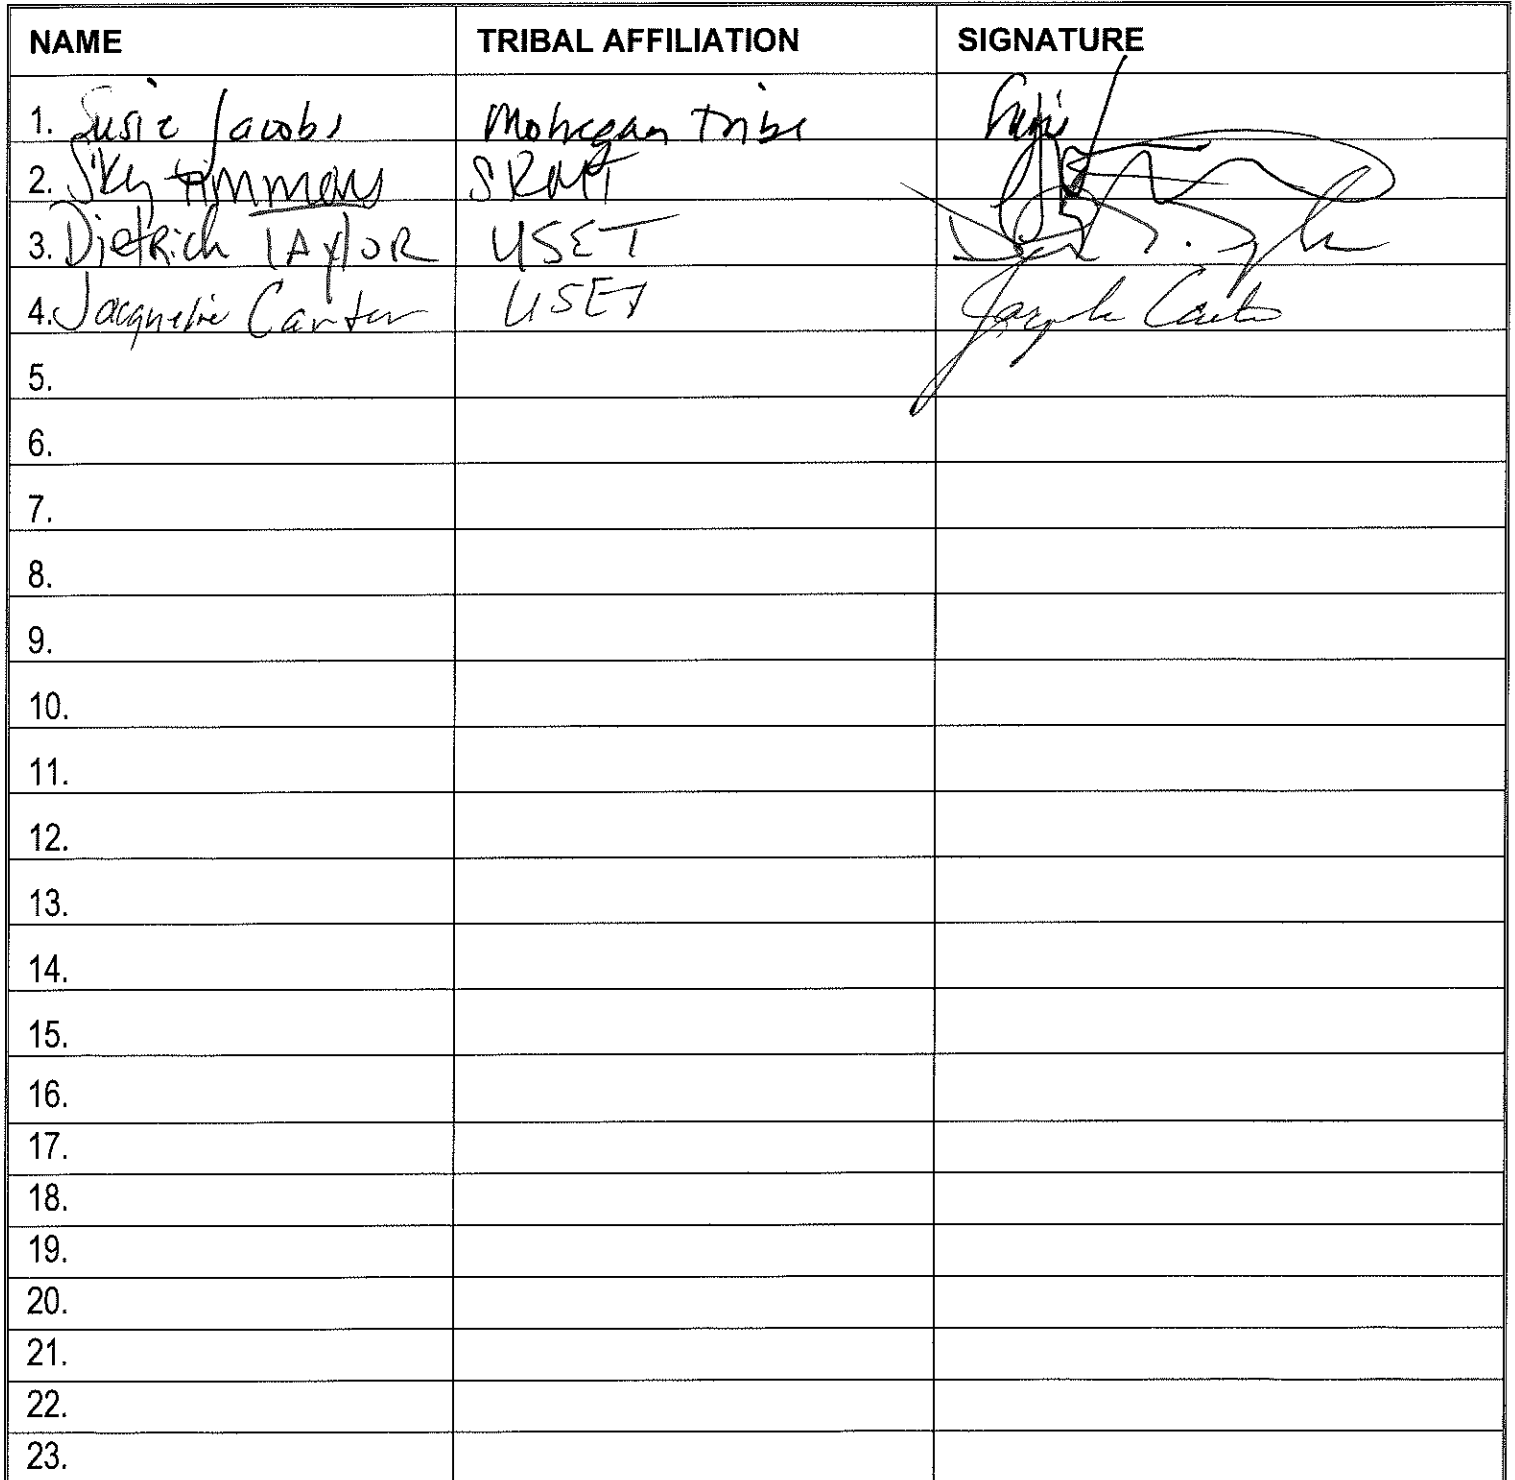 NAME TRIBAL AFFILIATION SIGNATURE
1. Susie Jacobs Mohegan Tribe
2. Sky Timmons SRMT
3. Dietrich TAYlOR USET
4. Jacqueline Carter USET
5.
6.
7.
8.
9.
10.
11.
12.
13.
14.
15.
16.
17.
18.
19.
20.
21.
22.
23.